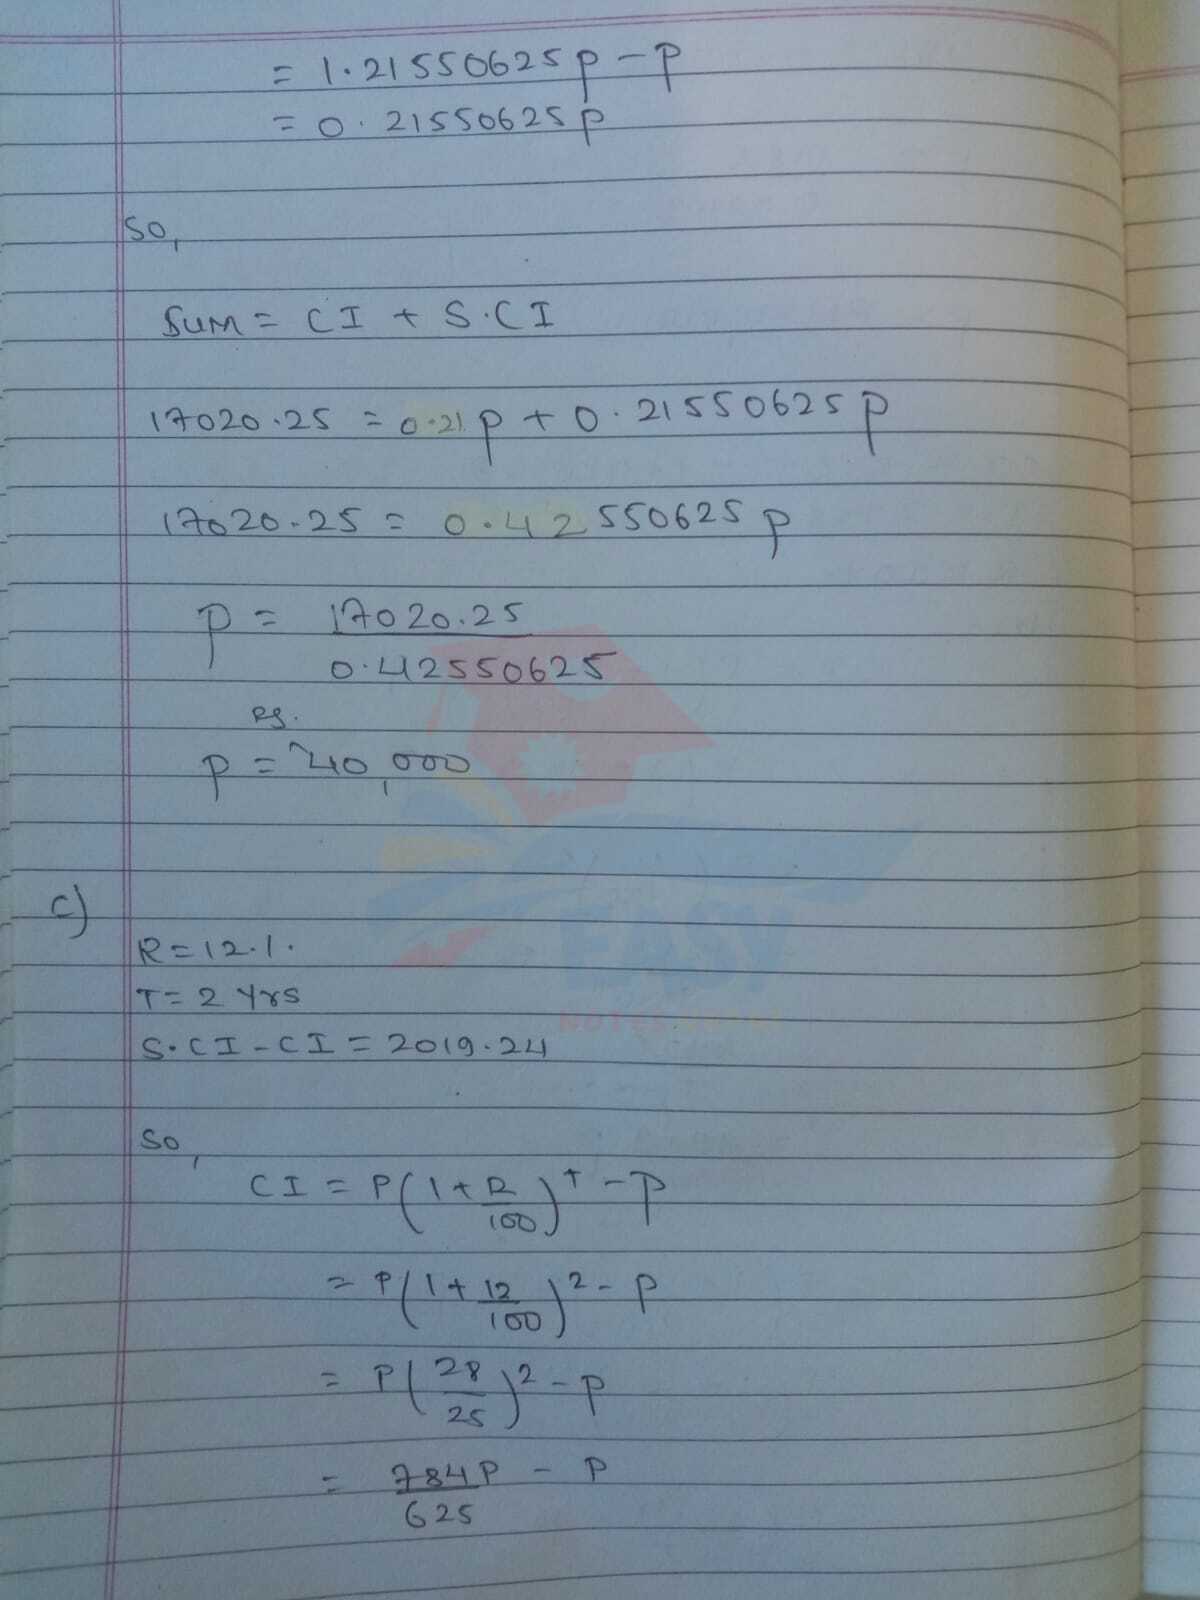 = 1.21550625p - p
= 0.21550625p
So,
Sum = CI + S.CI
17020.25 = 0.21 p + 0.21550625p
17020.25 = 0.42550625p
p = 17020.25
0.42550625
Rs.
p = 40,000
c)
R = 12%.
T = 2 Yrs
S.CI - CI = 2019.24
So,
CI = P(1 + R/100)^T - P
= P(1 + 12/100)^2 - P
= P(28/25)^2 - P
= 784P/625 - P
EASY
NOTES